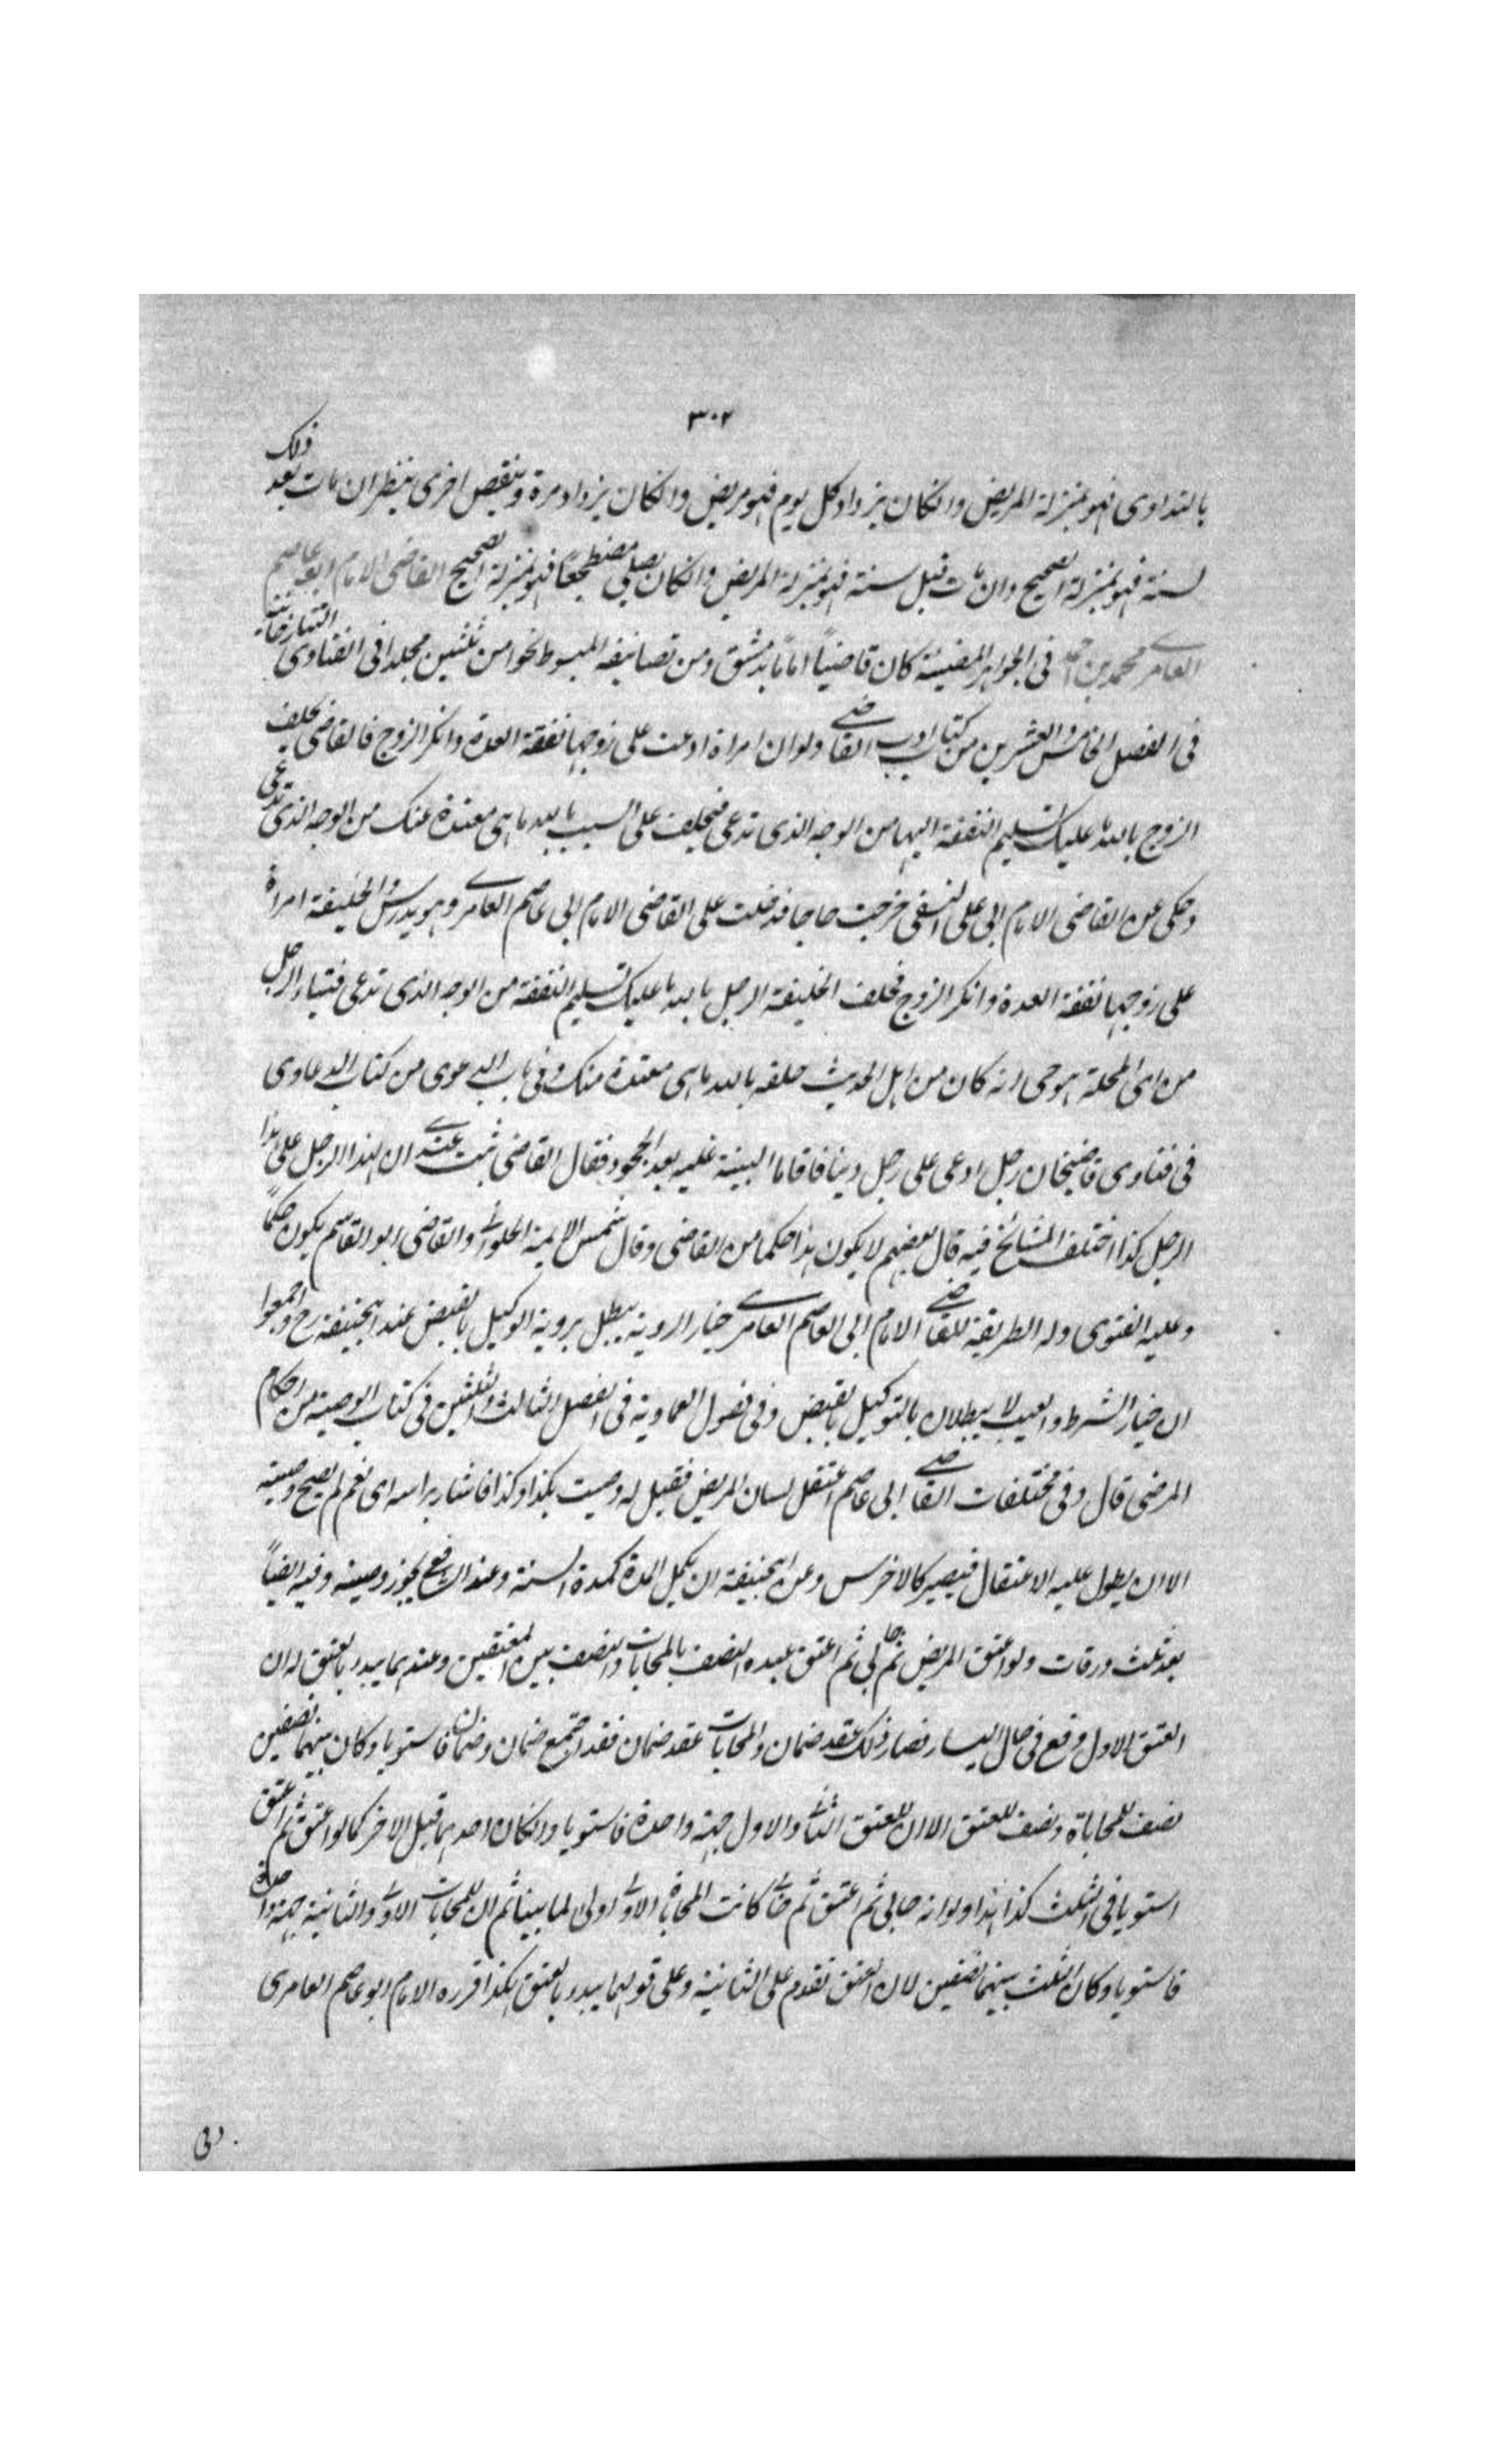 ٣٠٢
بالتداوى فهو بمنزلة المريض وانكان يزداد كل يوم فهو مريض وانكان يزداد مرة وينقص اخرى ينظر ان مات بعد ذلك
لسنة فهو بمنزلة الصحيح وان مات قبل سنة فهو بمنزلة المريض وانكان يصلى مضطجعاً فهو بمنزلة الصحيح القاضى الامام ابو عاصم
العامرى محمد بن احمد فى الجواهر المضيئة كان قاضياً اماماً بدمشق ومن تصانيفه المبسوط نحوا من ثلثين مجلدا فى الفتاوى التتارخانية
فى الفصل الخامس والعشرين من كتاب ادب القاضى ولو ان امراة ادعت على زوجها نفقة العدة وانكر الزوج فالقاضى يحلف
الزوج بالله ما عليك تسليم النفقة اليها من الوجه الذى تدعى فيحلف على السبب بالله ما هى معتدة عنك من الوجه الذى تدعى
وحكى عن القاضى الامام ابى على النسفى خرجت حاجا فدخلت على القاضى الامام ابى عاصم العامرى وهو يدرس والخليفة امراة
على زوجها نفقة العدة وانكر الزوج فحلف الخليفة الرجل بالله ما عليك تسليم النفقة من الوجه الذى تدعى الرجل
من اى المحلة هو حى انه كان من اهل الحديث حلفه بالله ما هى معتدة منك وفى باب الدعوى من كتاب الدعاوى
فى فتاوى قاضيخان رجل ادعى على رجل دينا فاقاما البينة عليه بعد الجحود فقال القاضى ثبت عندى ان لهذا الرجل على هذا
الرجل كذا اختلف المشائخ فيه قال بعضهم لا يكون هذا حكما من القاضى وقال شمس الايمة الحلوانى والقاضى ابو القاسم يكون حكماً
وعليه الفتوى وله الطريقة للقاضى الامام ابى العاصم العامرى خيار الروية يبطل بروية الوكيل بالقبض عند ابيحنيفة رح واجمعوا
ان خيار الشرط والعيب لا يبطلان بالتوكيل بالقبض وفى فصول العمادية فى الفصل الثالث والثلثين فى كتاب الوصية من احكام
المرضى قال وفى مختلفات القاضى ابى عاصم اعتقل لسان المريض فقيل له وصيت بكذا وكذا فاشار براسه اى نعم لم يصح وصيته
الا ان يطول عليه الاعتقال فيصير كالاخرس وعن ابيحنيفة ان يكمل المدة كمدة السنة وعند الشافع يجوز وصيته وفيه ايضاً
بعد ثلث ورقات ولو اعتق المريض ثم حابى ثم اعتق عبده النصف بالمحابات والنصف بين المعتقين وعندهما يبدر بالعتق له ان
العتق الاول وقع فى حال اليسار فصار ذلك عقد ضمان والمحابات عقد ضمان فقد اجتمع ضمان وضمان فاستويا وكان بينهما نصفين
نصف للمحاباة ونصف للعتق الا ان للعتق الثانى والاول جهة واحدة فاستويا وانكان احدهما قبل الاخر كما لو اعتق ثم اعتق
استويا فى الثلث كذا هذا ولو انه حابى ثم اعتق ثم حابى كانت المحاباة الاولى اولى لما بينا ثم ان للمحابات الاولى والثانية جهة واحدة
فاستويا وكان الثلث بينهما نصفين لان العتق تقدم على الثانية وعلى قولهما يبدر بالعتق هكذا قرره الامام ابو عاصم العامرى
وفى